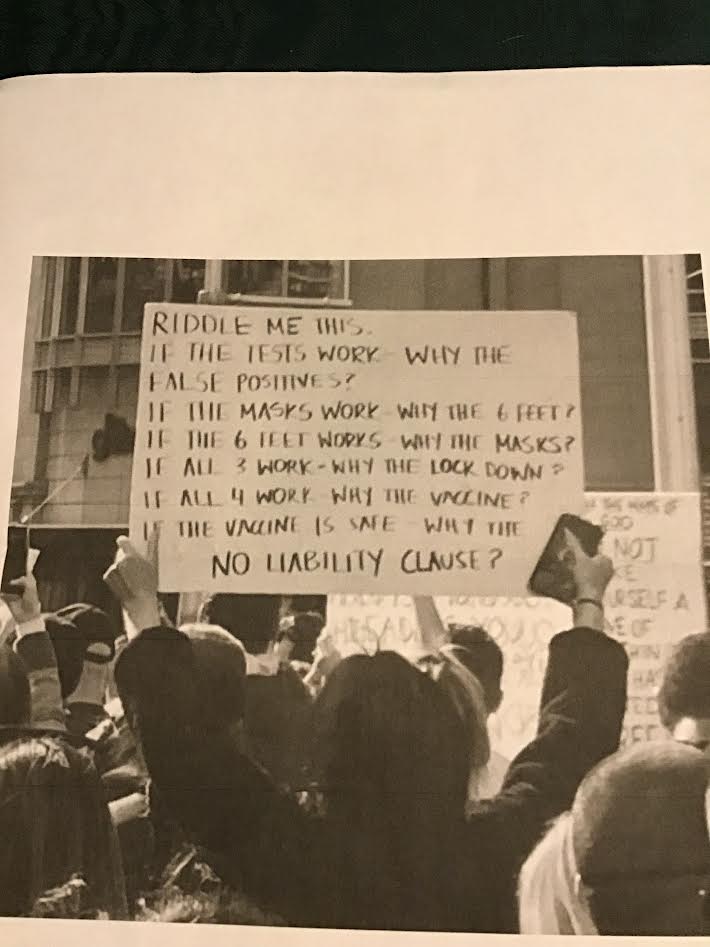 RIDDLE ME THIS.
IF THE TESTS WORK - WHY THE
FALSE POSITIVES?
IF THE MASKS WORK - WHY THE 6 FEET?
IF THE 6 FEET WORKS - WHY THE MASKS?
IF ALL 3 WORK - WHY THE LOCK DOWN?
IF ALL 4 WORK - WHY THE VACCINE?
IF THE VACCINE IS SAFE - WHY THE
NO LIABILITY CLAUSE?
THE NAME OF
NOT
A
OF